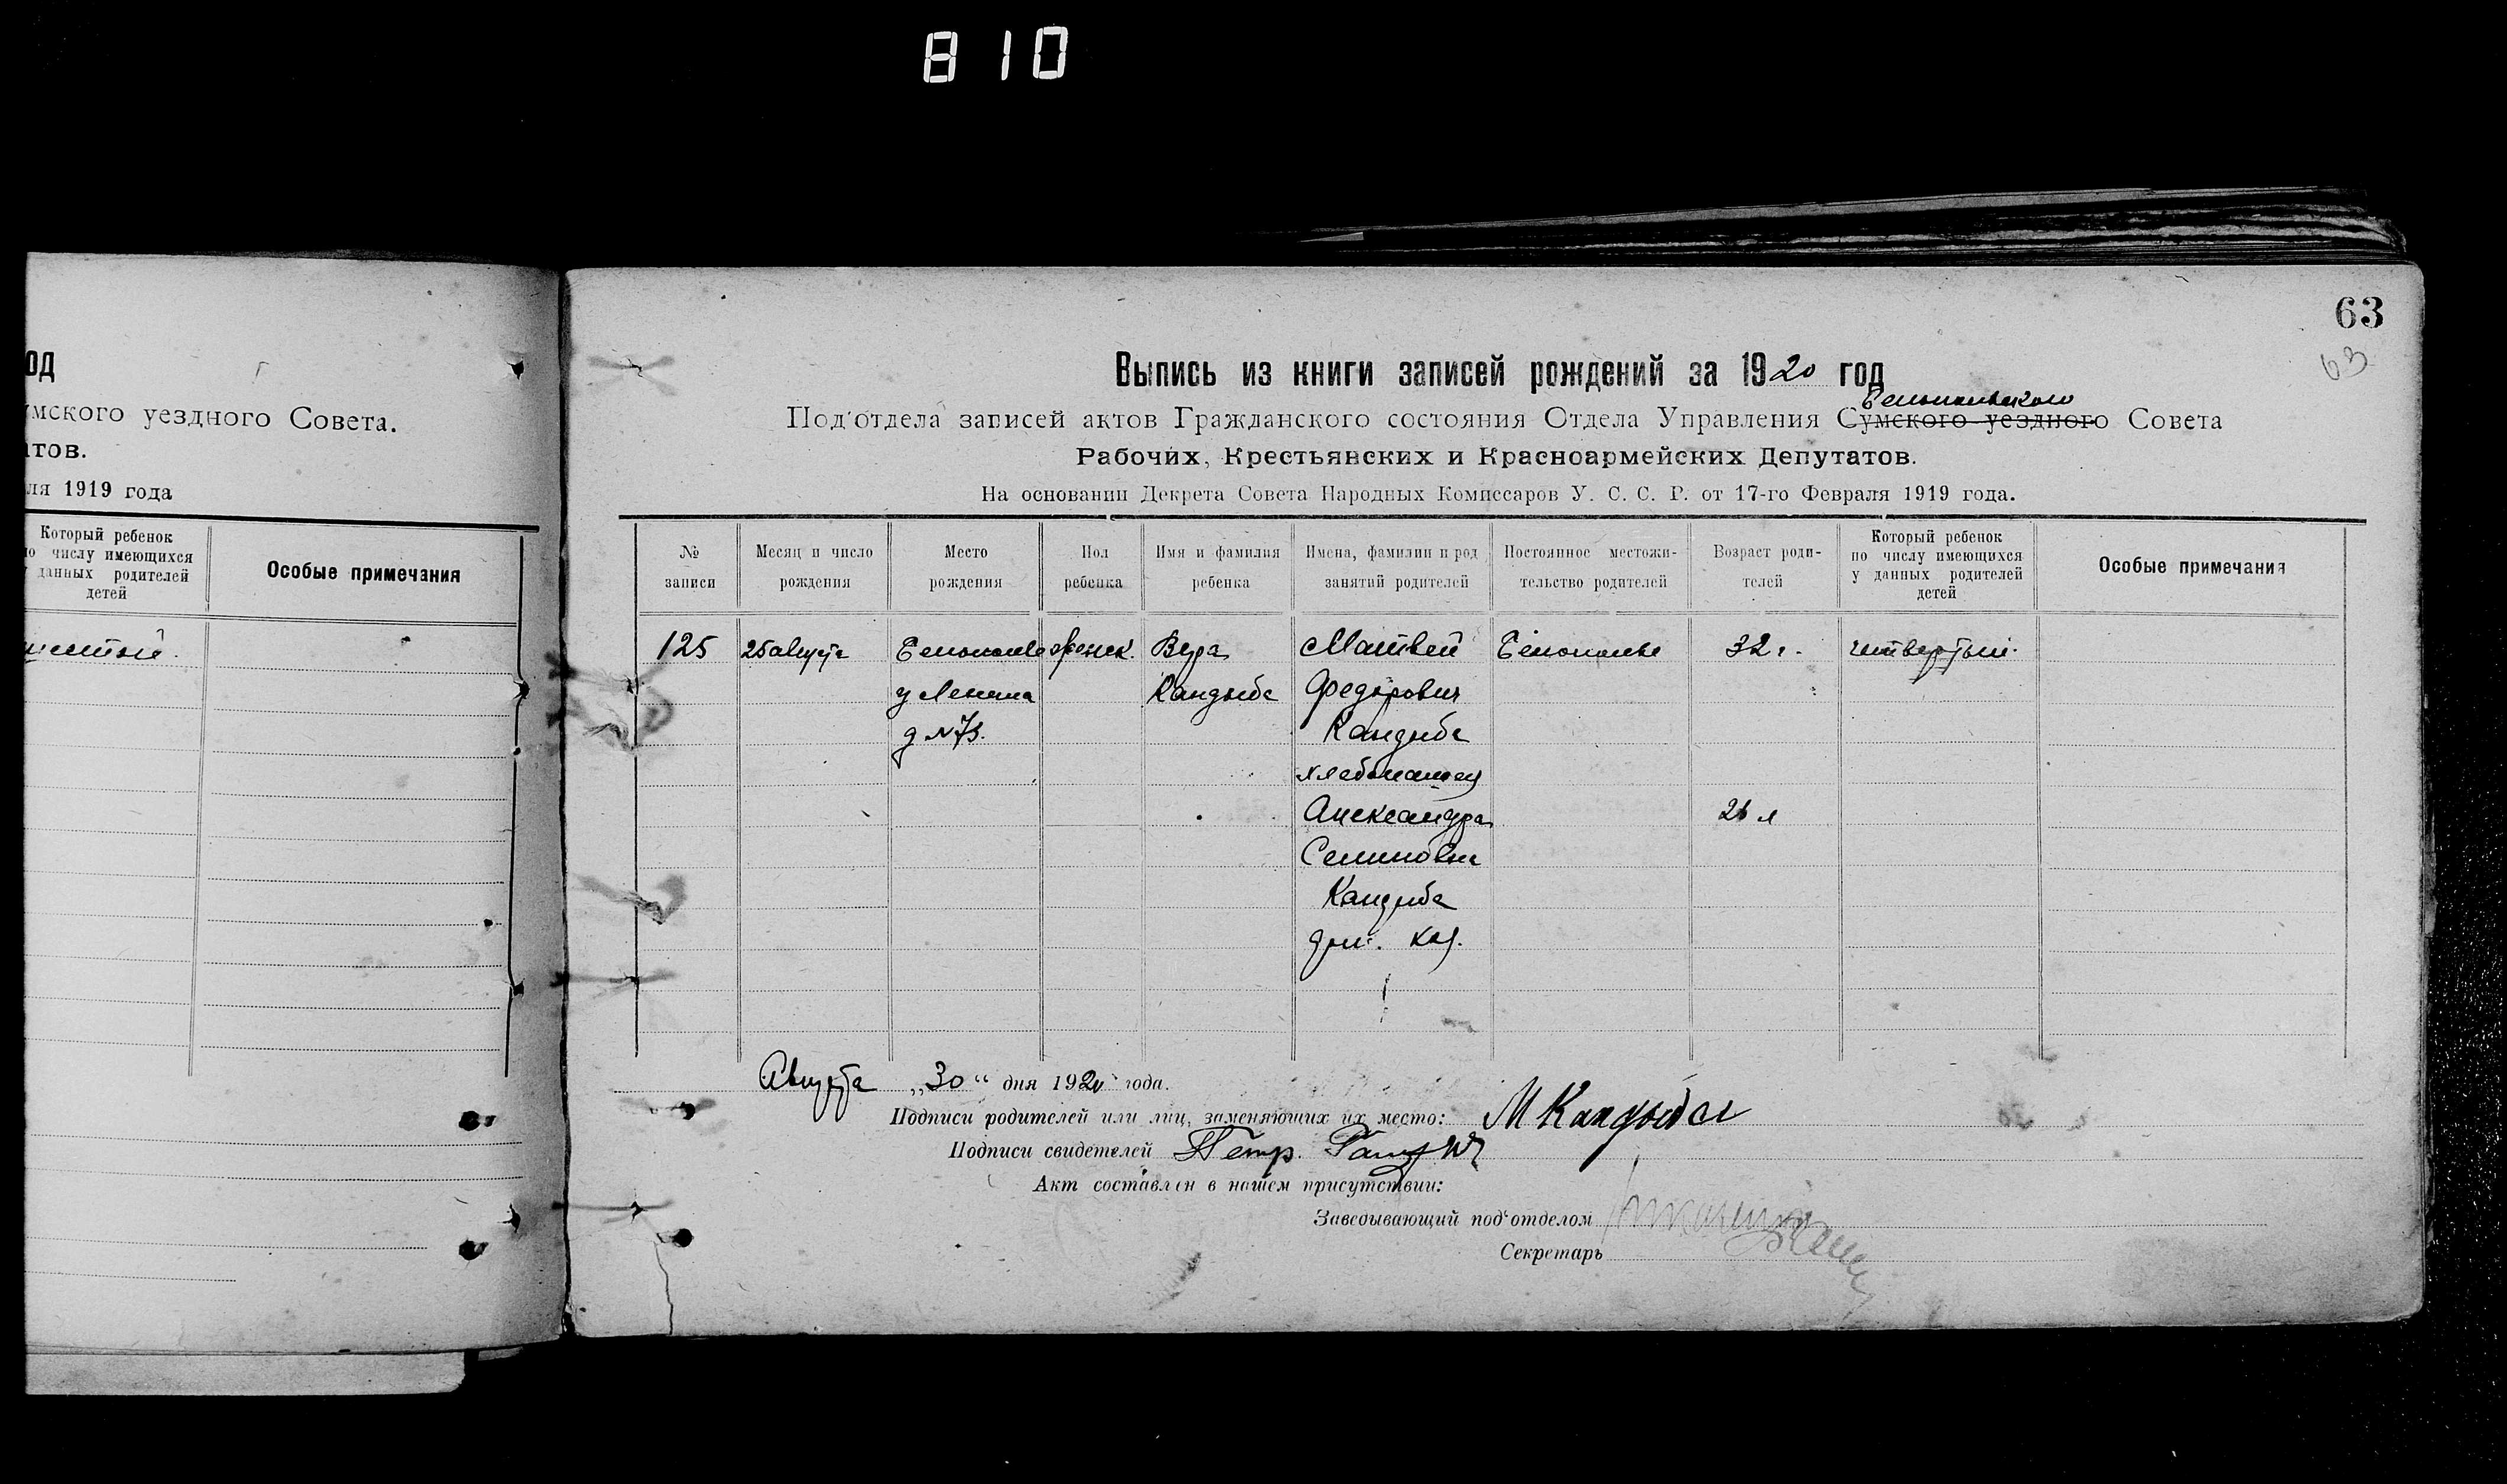 810
од
умского уездного Совета.
атов.
ля 1919 года
Который ребенок
по числу имеющихся
у данных родителей
детей
Особые примечания
шестой.
63
63
Выпись из книги записей рождений за 1920 год
Белопольского
Под'отдела записей актов Гражданского состояния Отдела Управления Сумского уездного Совета
Рабочих, Крестьянских и Красноармейских Депутатов.
На основании Декрета Совета Народных Комиссаров У. С. С. Р. от 17-го Февраля 1919 года.
№
записи
Месяц и число
рождения
Место
рождения
Пол
ребенка
Имя и фамилия
ребенка
Имена, фамилии и род
занятий родителей
Постоянное местожи-
тельство родителей
Возраст роди-
телей
Который ребенок
по числу имеющихся
у данных родителей
детей
Особые примечания
125
25 августа
Белополье
у Ленина
д № 73.
женск.
Вера
Кандыба
Матвей
Федорович
Кандыба
хлебопашец
Александра
Семиновна
Кандыба
дом. хоз.
Белополье
32 г.
26 л
четвертый.
Августа „30“ дня 1920 года.
Подписи родителей или лиц, заменяющих их место: М Кандыба
Подписи свидетелей Петр.
Акт составлен в нашем присутствии:
Заведывающий под'отделом
Секретарь